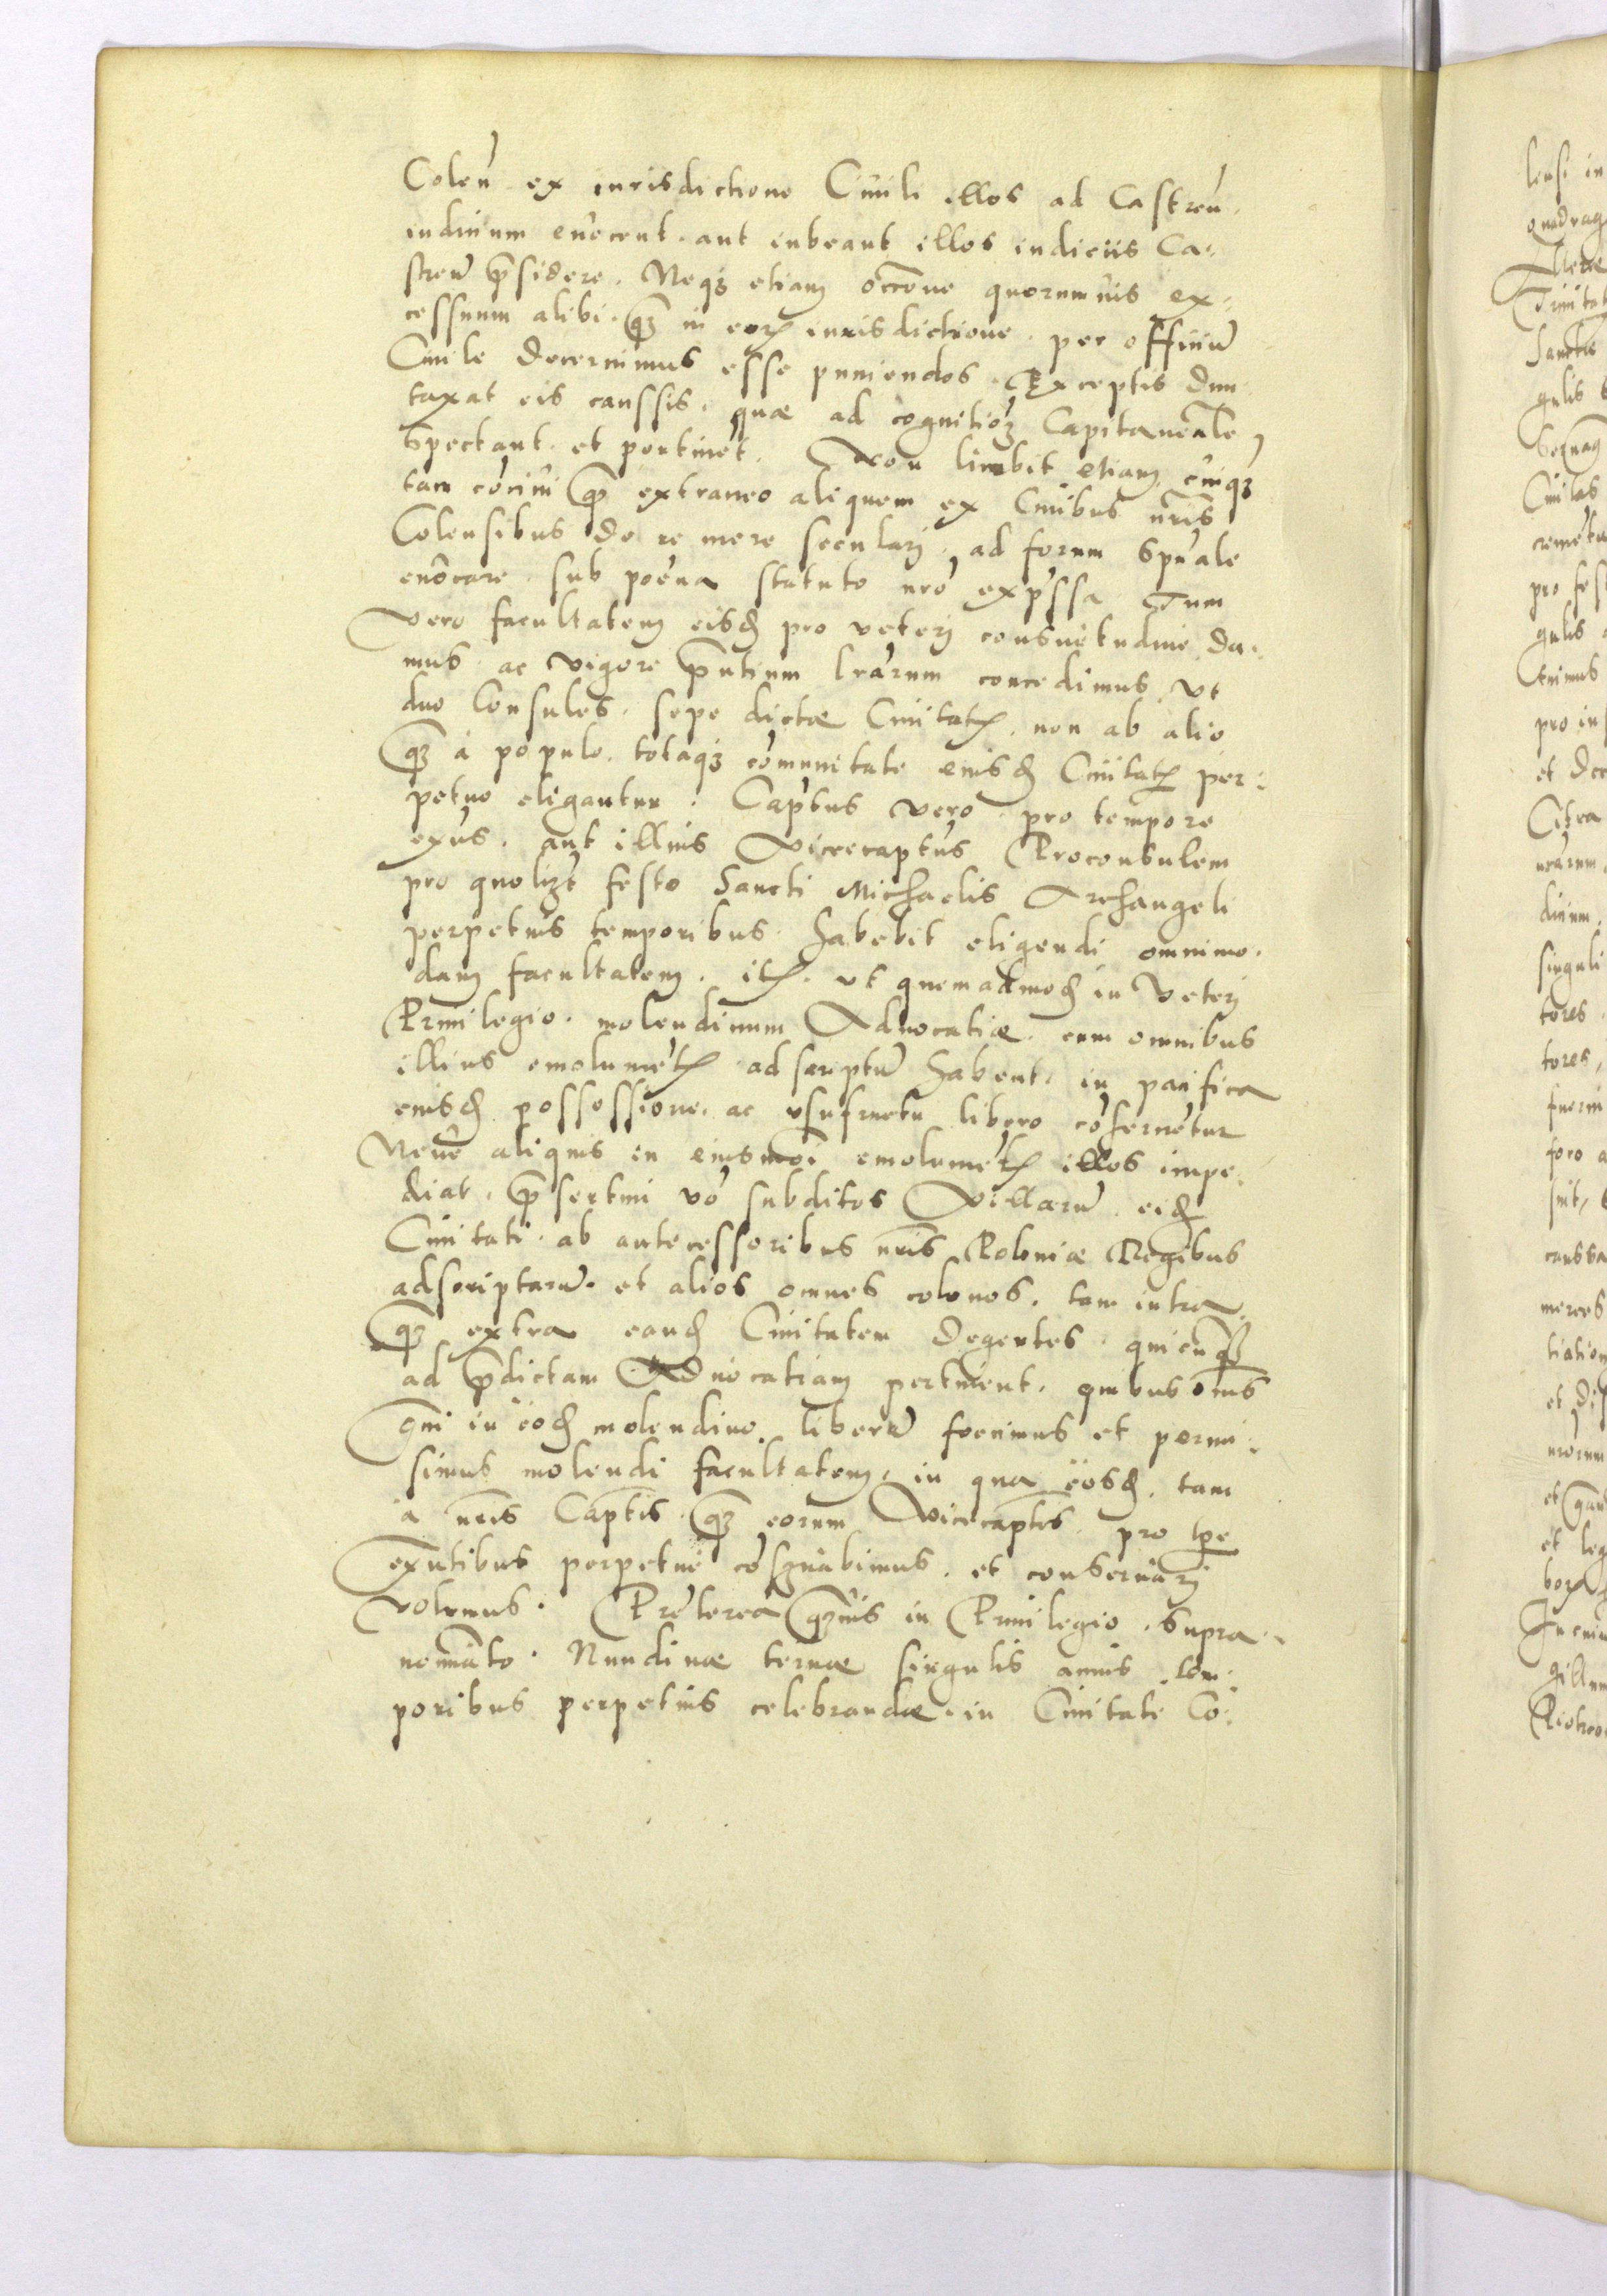 Coleñ ex iurisdictione Ciuili illos ad Castreñ.
iudicium euocent. aut iubeant illos iudiciis Ca-
streñ p̄sidere. Neqȝ etiam occ̄one quorumuis ex-
cessuum alibi. qȝ in eorꝝ iurisdictione. per officiũ
Ciuile decernimus esse puniendos. Exceptis dun
taxat eis caussis. quæ ad cognitioȝ Capitaneale
spectant. et pertinẽt. Non licebit etiam cuiqȝ
tam cõciui qȝ extraneo aliquem ex Ciuibus nr̃is
Colensibus de re mere seculari, ad forum Spũale
euocare. sub poena statuto nrõ exp̃ssa Tum
vero facultatem eisdꝫ pro veteri consuetudine da-
mus. ac vigore p̄ntium lr̃arum concedimus. Vt
duo Consules. sepe dictæ Ciuitatꝭ. non ab alio
qȝ à populo. totaqȝ cõmunitate eiusdꝫ Ciuitatꝭ per-
petuo eligantur. Captũs vero pro tempore
exñs. aut illius Vicecaptũs Proconsulem
pro quolizt festo Sancti Michaelis Archangeli
perpetuis temporibus habebit eligendi omnimo-
dam facultatem. itꝫ. vt quemadmodꝫ in Veteri
Priuilegio. molendinum Aduocatiæ. cum omnibus
illius emolumẽtꝭ adscriptũ habent. in pacifica
eiusdꝫ possessione. ac vsufructu libero cõseruẽtur
Neue aliquis in eiusmõi emolumẽtꝭ illos impe-
diat. p̄sertim võ subditos Villarũ eidꝫ
Ciuitati. ab antecessoribus nr̃is Poloniæ Regibus
adscriptarũ. et alios omnes colonos. tam intra
qȝ extra eandꝫ Ciuitatem degentes. quicũqȝ
ad p̄dictam Aduocatiam pertinent. quibus om̃s
qui in eodꝫ molendino liberũ fecimus et permi-
simus molendi facultatem. in qua eosdꝫ. tam
à nr̃is Capt̃is. qȝ eorum Vicecapt̃is. pro tp̄e
exñtibus perpetuè cõseruabimus. et conseruari
volumus. Preterea qȝuis in Priuilegio. supra-
nomĩato. Nundinæ ternæ singulis annis. tem-
poribus perpetuis celebrandæ. in Ciuitate Co-